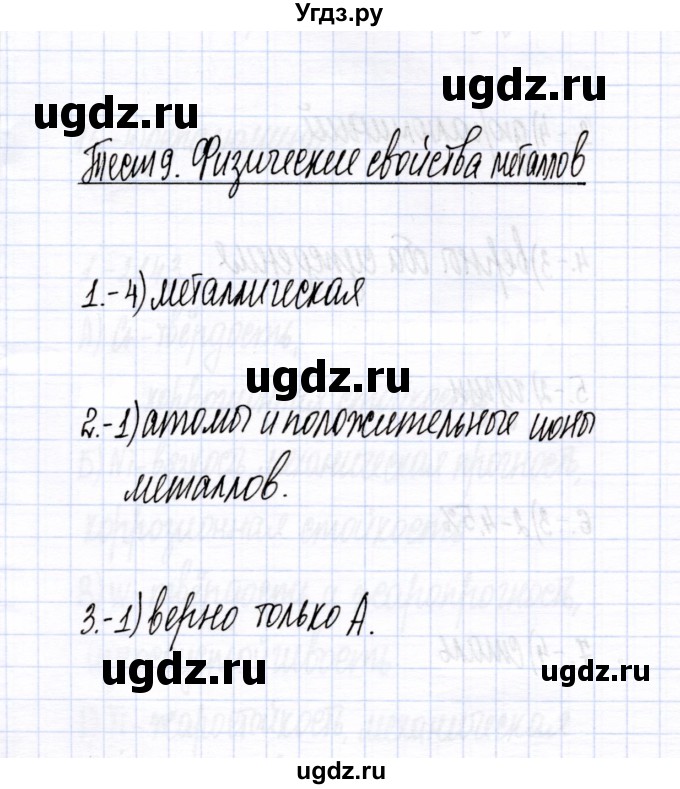 Угдз.ру
ugdz.ru
ugdz.ru
Тест 9. Физические свойства металлов
1.-4) металлическая
ugdz.ru
2.-1) атомы и положительные ионы
металлов.
ugdz.ru
3.-1) верно только А.
ugdz.ru
ugdz.ru
ugdz.ru